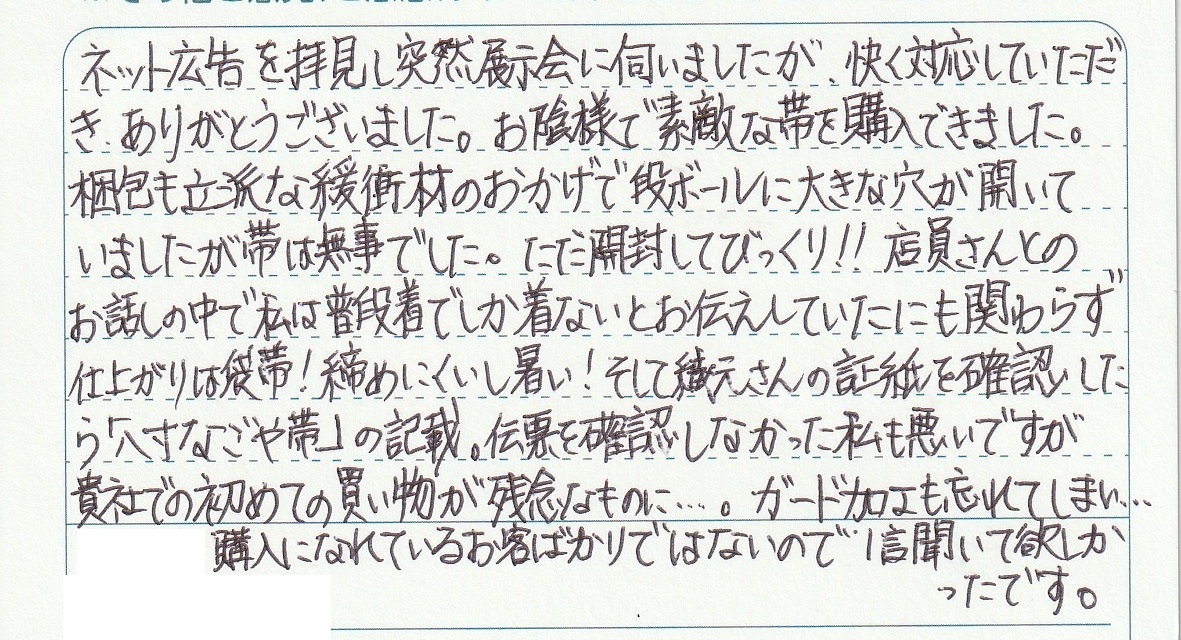 ネット広告を拝見し突然展示会に伺いましたが、快く対応していただ
き、ありがとうございました。お陰様で素敵な帯を購入できました。
梱包も立派な緩衝材のおかげで段ボールに大きな穴が開いて
いましたが帯は無事でした。ただ開封してびっくり!!店員さんとの
お話しの中で私は普段着でしか着ないとお伝えしていたにも関わらず
仕上がりは袋帯!締めにくいし暑い!そして織元さんの証紙を確認した
ら「八寸なごや帯」の記載。伝票を確認しなかった私も悪いですが
貴社での初めての買い物が残念なものに…。ガード加工も忘れてしまい…
購入になれているお客ばかりではないので1言聞いて欲しか
ったです。